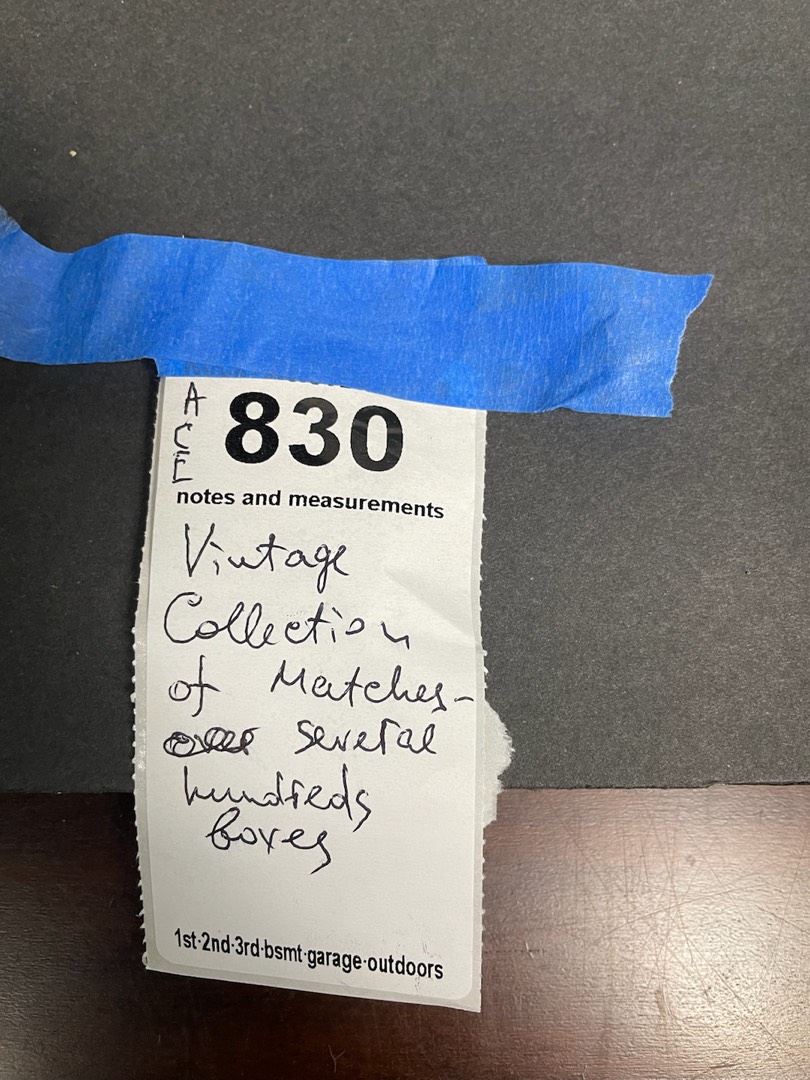 A
C
E
830
notes and measurements
Vintage
Collection
of Matches-
several
hundreds
boxes
1st·2nd·3rd·bsmt·garage·outdoors